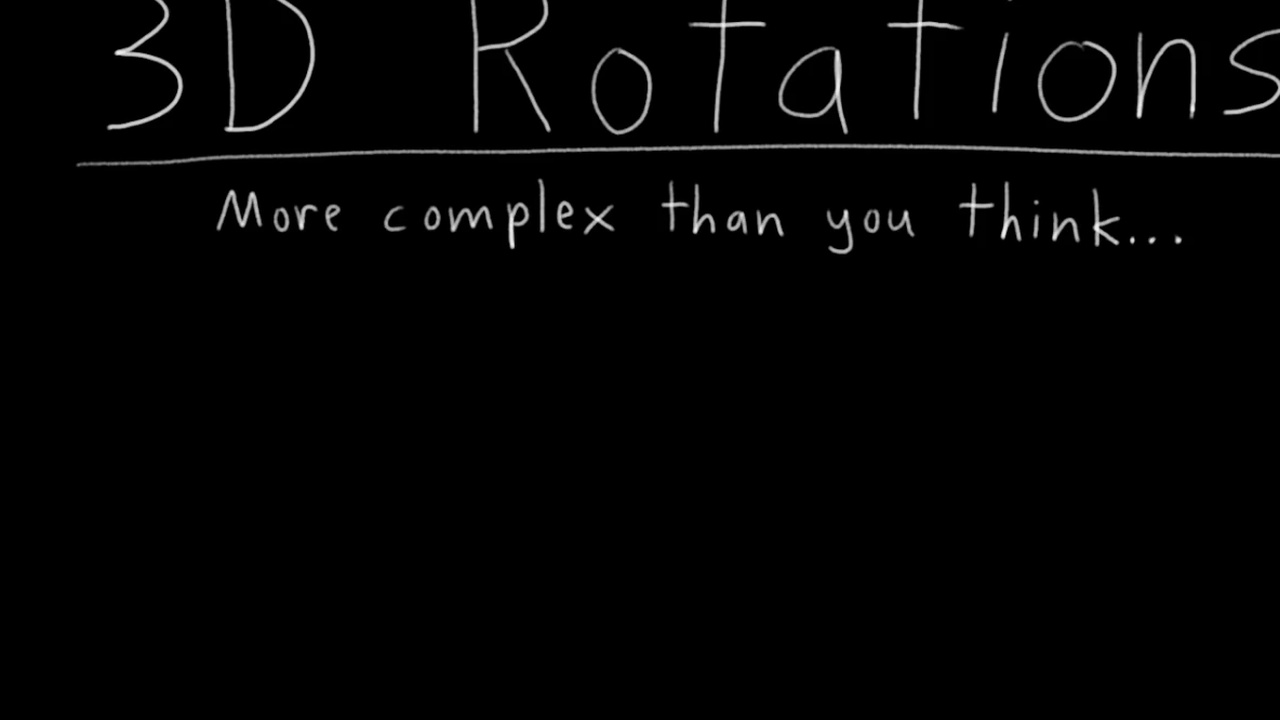 3D Rotations
More complex than you think...